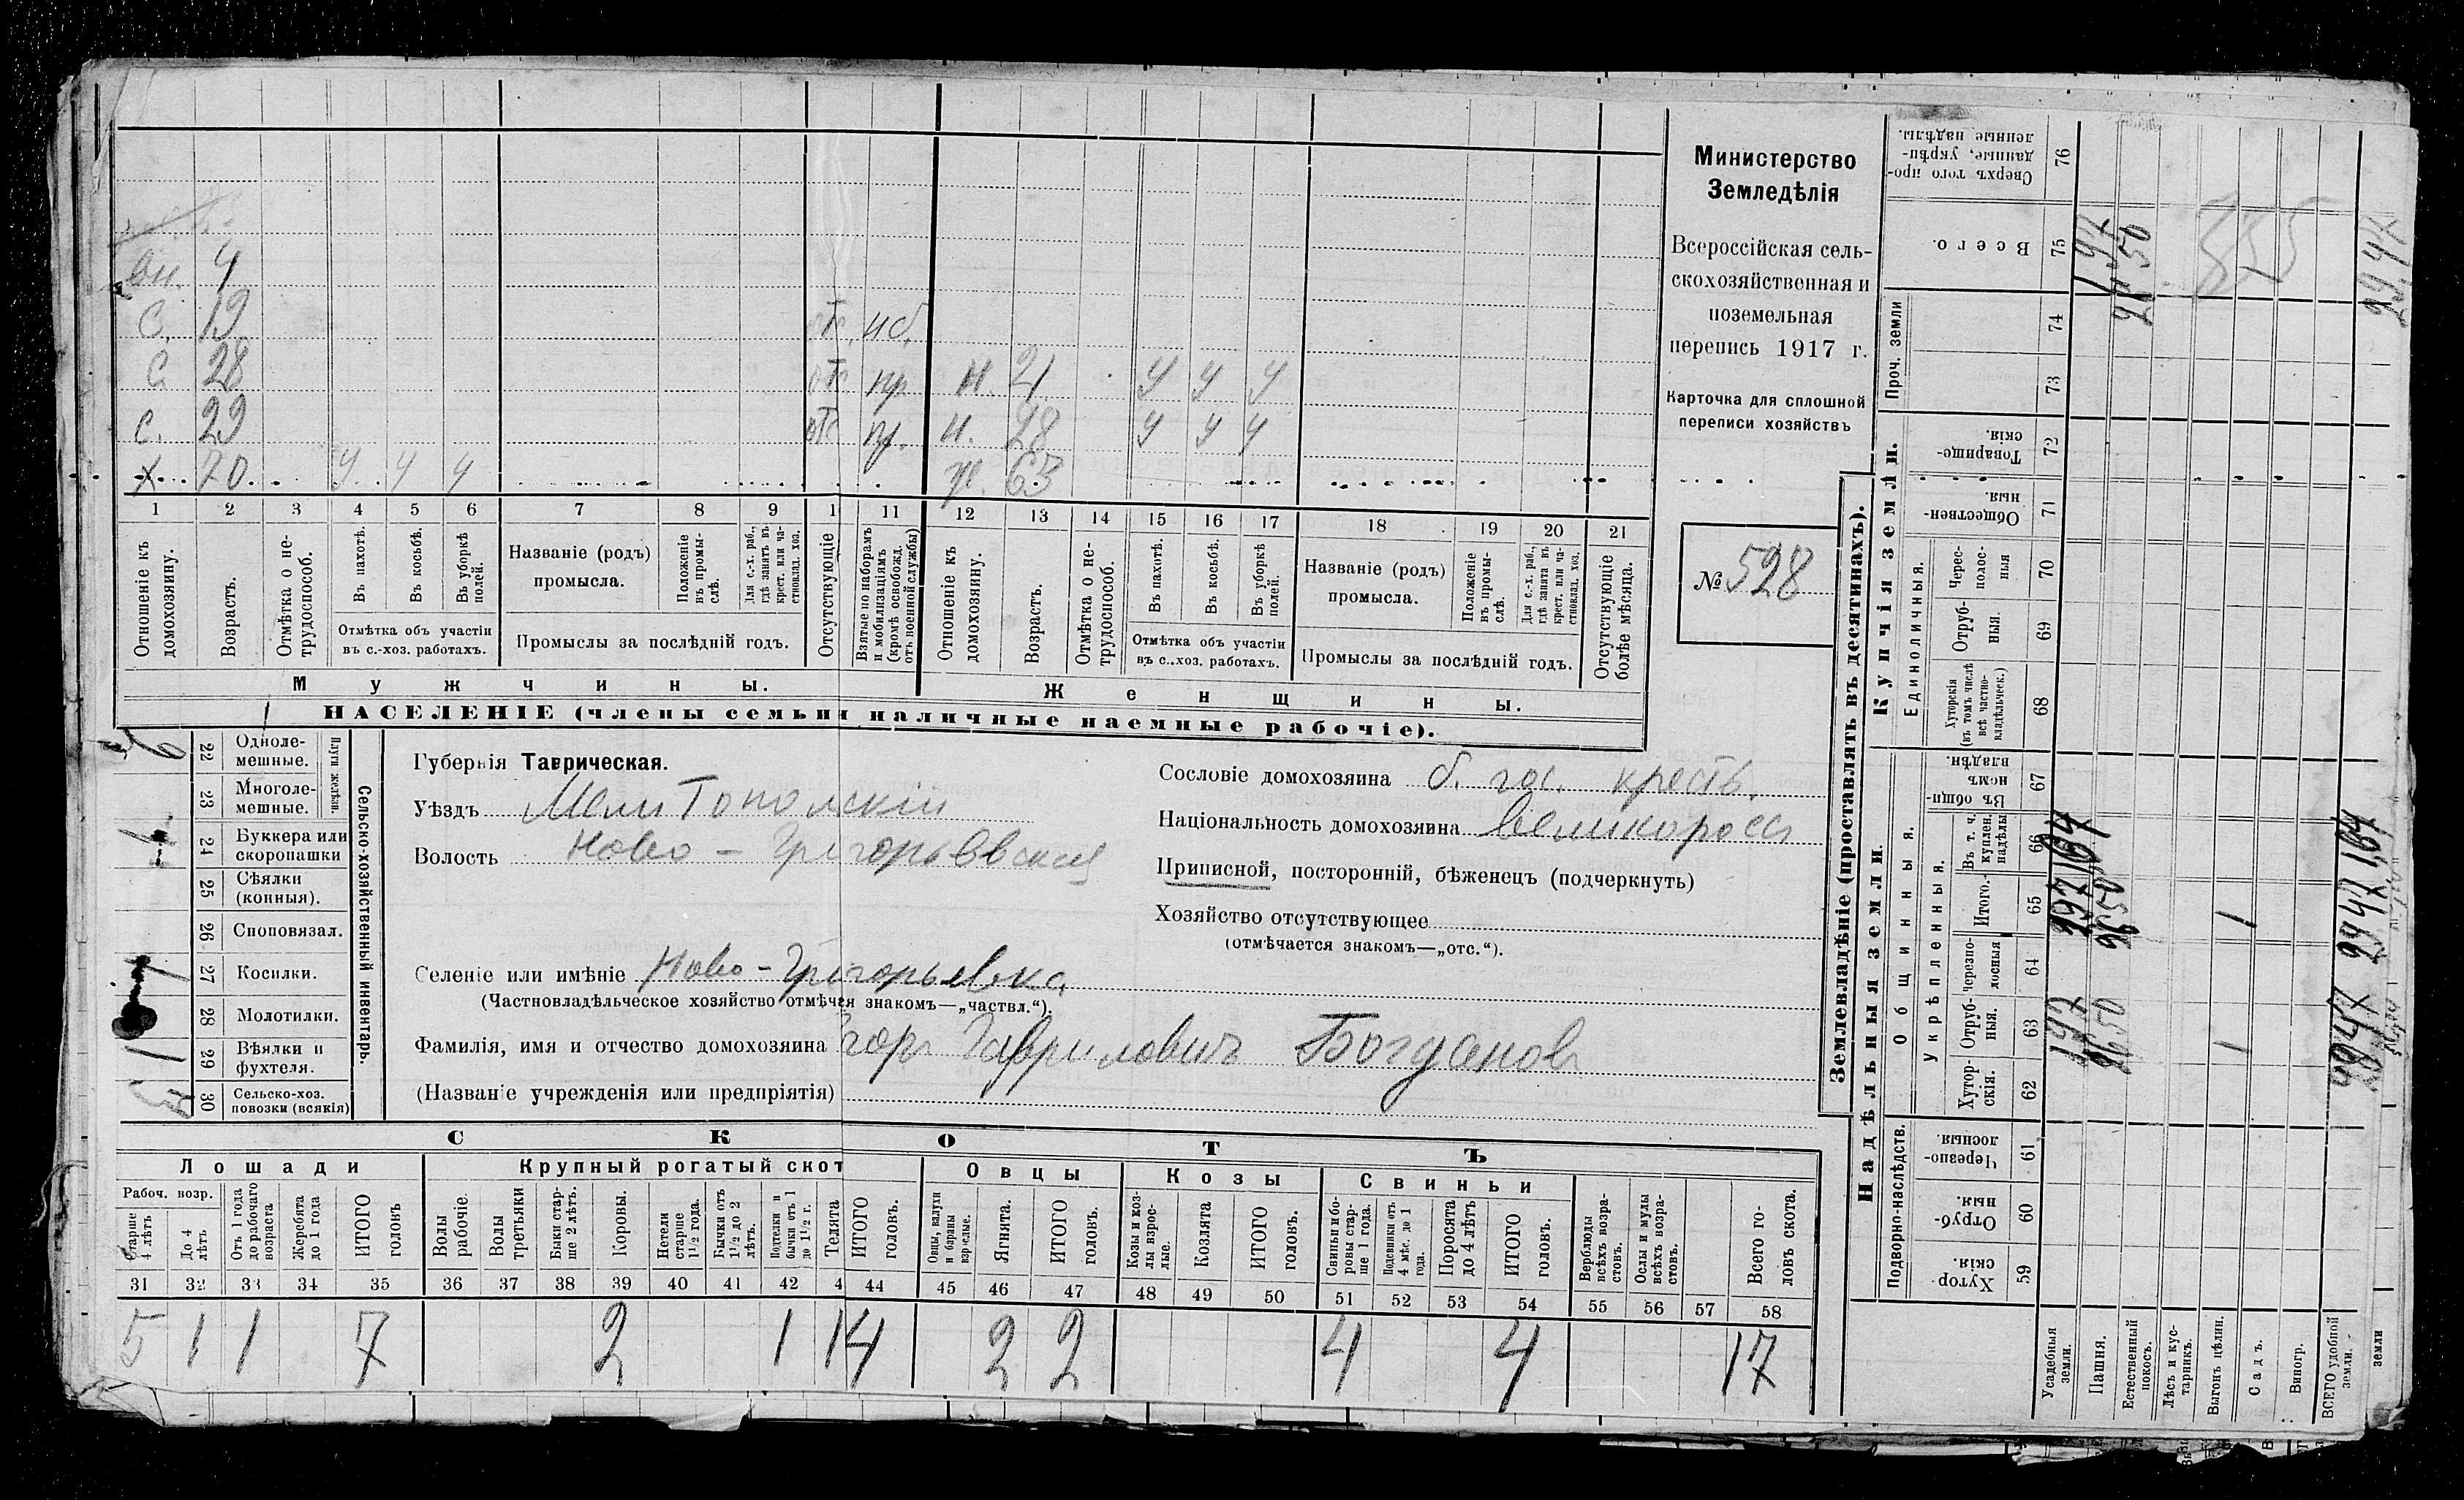 вн. 4
с. 19 отс. нб.
с 28 отс пр н. 21 у у у
с. 29 отс пр. н. 28 у у у
х 70 у у у ж. 63
1 2 3 4 5 6 7 8 9 1 11 12 13 14 15 16 17 18 19 20 21
Отношеніе къ домохозяину.
Возрастъ.
Отмѣтка о нетрудоспособ.
Въ пахотѣ.
Въ косьбѣ.
Въ уборкѣ полей.
Отмѣтка объ участіи
въ с.-хоз. работахъ.
Названіе (родъ)
промысла.
Положеніе въ промыслѣ.
Для с.-х. раб., гдѣ занятъ въ крест. или частновлад. хоз.
Промыслы за послѣдній годъ.
Отсутствующіе
Взятые по наборамъ и мобилизаціямъ (кромѣ освобожд. отъ военной службы)
Отношеніе къ домохозяину.
Возрастъ.
Отмѣтка о нетрудоспособ.
Въ пахотѣ.
Въ косьбѣ.
Въ уборкѣ полей.
Отмѣтка объ участіи
въ с..хоз. работахъ.
Названіе (родъ)
промысла.
Положеніе въ промыслѣ.
Для с.-х. раб., гдѣ занята въ крест. или частновлад. хоз.
Промыслы за послѣдній годъ.
Отсутствующіе болѣе мѣсяца.
Мужчины.
Женщины.
НАСЕЛЕНІЕ (члены семьи и наличные наемные рабочіе).
Министерство
Земледѣлія
Всероссійская сель-
скохозяйственная и
поземельная
перепись 1917 г.
Карточка для сплошной
переписи хозяйствъ
№ 528
22 Однолемешные.
23 Многолемешные.
Плуги желѣзн.
24 Буккера или скоропашки
25 Сѣялки (конныя).
26 Сноповязал.
27 Косилки.
28 Молотилки.
29 Вѣялки и фухтеля.
30 Сельско-хоз. повозки (всякія)
Сельско-хозяйственный инвентарь.
Губернія Таврическая.
Уѣздъ Мелитопольскій
Волость Ново-Григорьевская
Селеніе или имѣніе Ново-Григорьевка
(Частновладѣльческое хозяйство отмѣчая знакомъ—„частвл.“).
Фамилія, имя и отчество домохозяина Егоръ Гавриловичъ Богдановъ
(Названіе учрежденія или предпріятія)
Сословіе домохозяина б. гос. крестъ.
Національность домохозяина великороссъ
Приписной, посторонній, бѣженецъ (подчеркнуть)
Хозяйство отсутствующее
(отмѣчается знакомъ—„отс.“).
СКОТЪ
Лошади
Крупный рогатый скот
Овцы
Козы
Свиньи
Рабоч. возр.
Старше 4 лѣтъ
До 4 лѣтъ
Отъ 1 года до рабочаго возраста
Жеребята до 1 года
ИТОГО головъ
Волы рабочіе.
Волы третьяки
Быки старше 2 лѣтъ.
Коровы.
Нетели старше 1½ года.
Бычки отъ 1½ до 2 лѣтъ.
Подтелки и бычки отъ 1 до 1½ г.
Телята
ИТОГО головъ.
Овцы, валухи и бараны взрослые.
Ягнята.
ИТОГО головъ.
Козы и козлы взрослые.
Козлята
ИТОГО головъ.
Свиньи и боровы старше 1 года.
Подсвинки отъ 4 мѣс. до 1 года.
Поросята до 4 лѣтъ
ИТОГО головъ.
Верблюды всѣхъ возрастовъ.
Ослы и мулы всѣхъ возрастовъ.
Всего головъ скота.
31 32 33 34 35 36 37 38 39 40 41 42 4 44 45 46 47 48 49 50 51 52 53 54 55 56 57 58
5 1 1 7 2 1 1 4 2 2 4 4 17
Землевладѣніе (проставлять въ десятинахъ).
Надѣльныя земли.
Купчія земли.
Проч. земли
Подворно-наслѣдств.
Общинныя.
Укрѣпленныя.
Единоличныя.
Хуторскія. 59
Отрубныя. 60
Черезполосныя. 61
Хуторскія. 62
Отрубныя. 63
Черезполосныя 64
Итого. 65
Въ т. ч. куплен. надѣлы 66
Въ общинномъ владѣн. 67
Хуторскія (въ томъ числѣ всѣ частновладѣльческ.) 68
Отрубныя. 69
Черезполосныя 70
Общественныя. 71
Товарищескія. 72
73
74
Всего. 75
Сверхъ того проданные, укрѣпленные надѣлы. 76
Усадебныя земли. 1,97 1,97 1,64 1,97
Пашня. 26,50 26,50 26,50
Естественный покосъ.
Лѣсъ и кустарникъ.
Выгонъ цѣлин. 1 1
Садъ.
Виногр.
ВСЕГО удобной земли. 29,47 29,47 1,64 29,47
земли